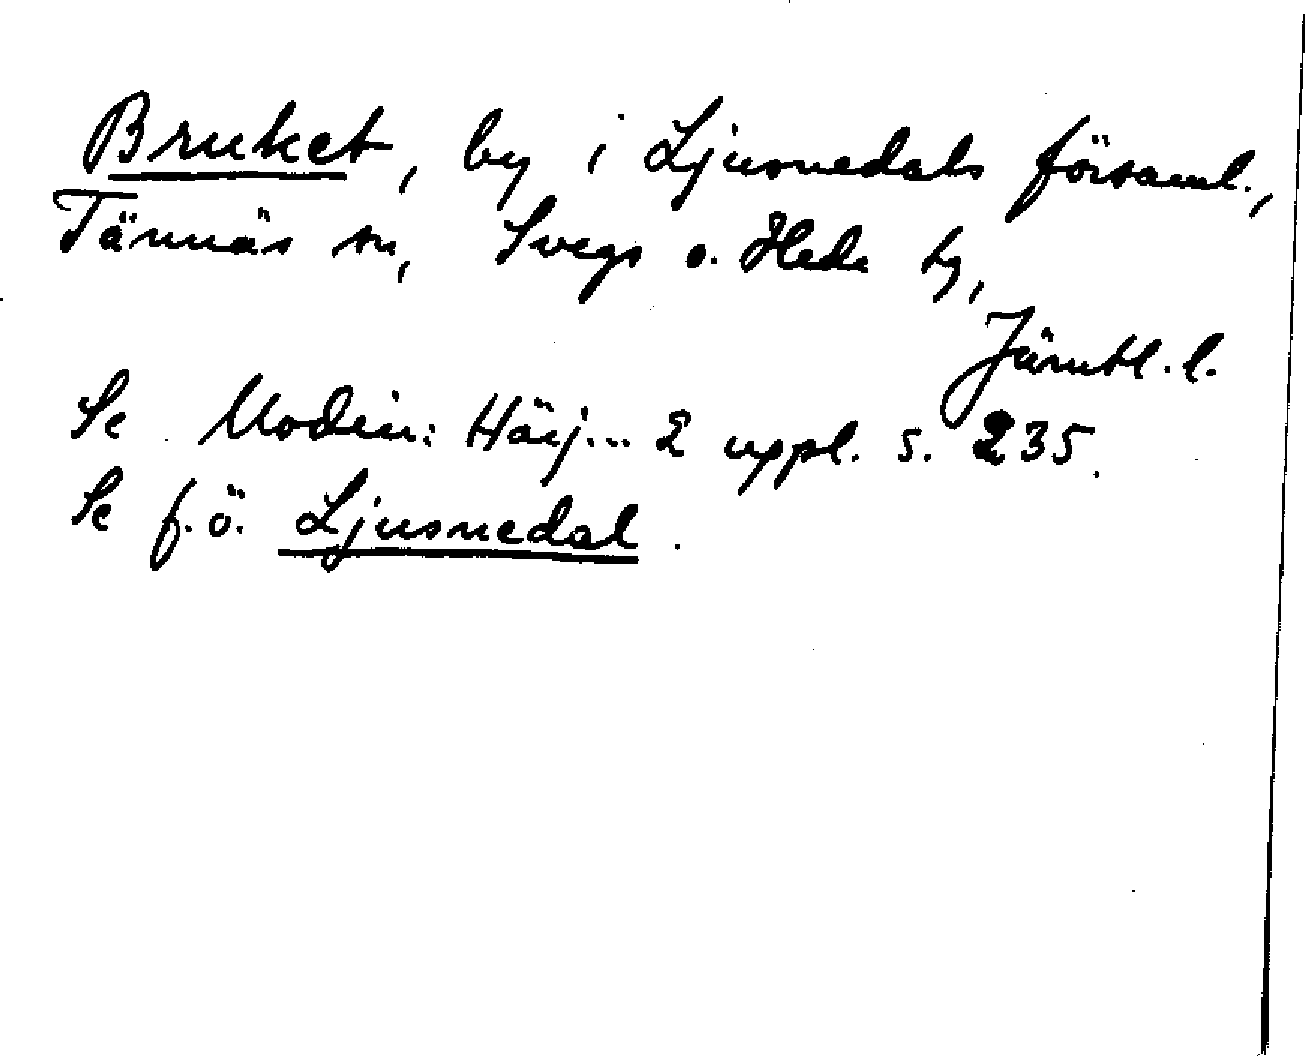 Bruket, by i Ljusnedals församl.,
Tännäs sn, Svegs o. Hede tg,
Jämtl. l.
Se Modin: Härj... 2 uppl. s. 235.
Se f.ö. Ljusnedal.